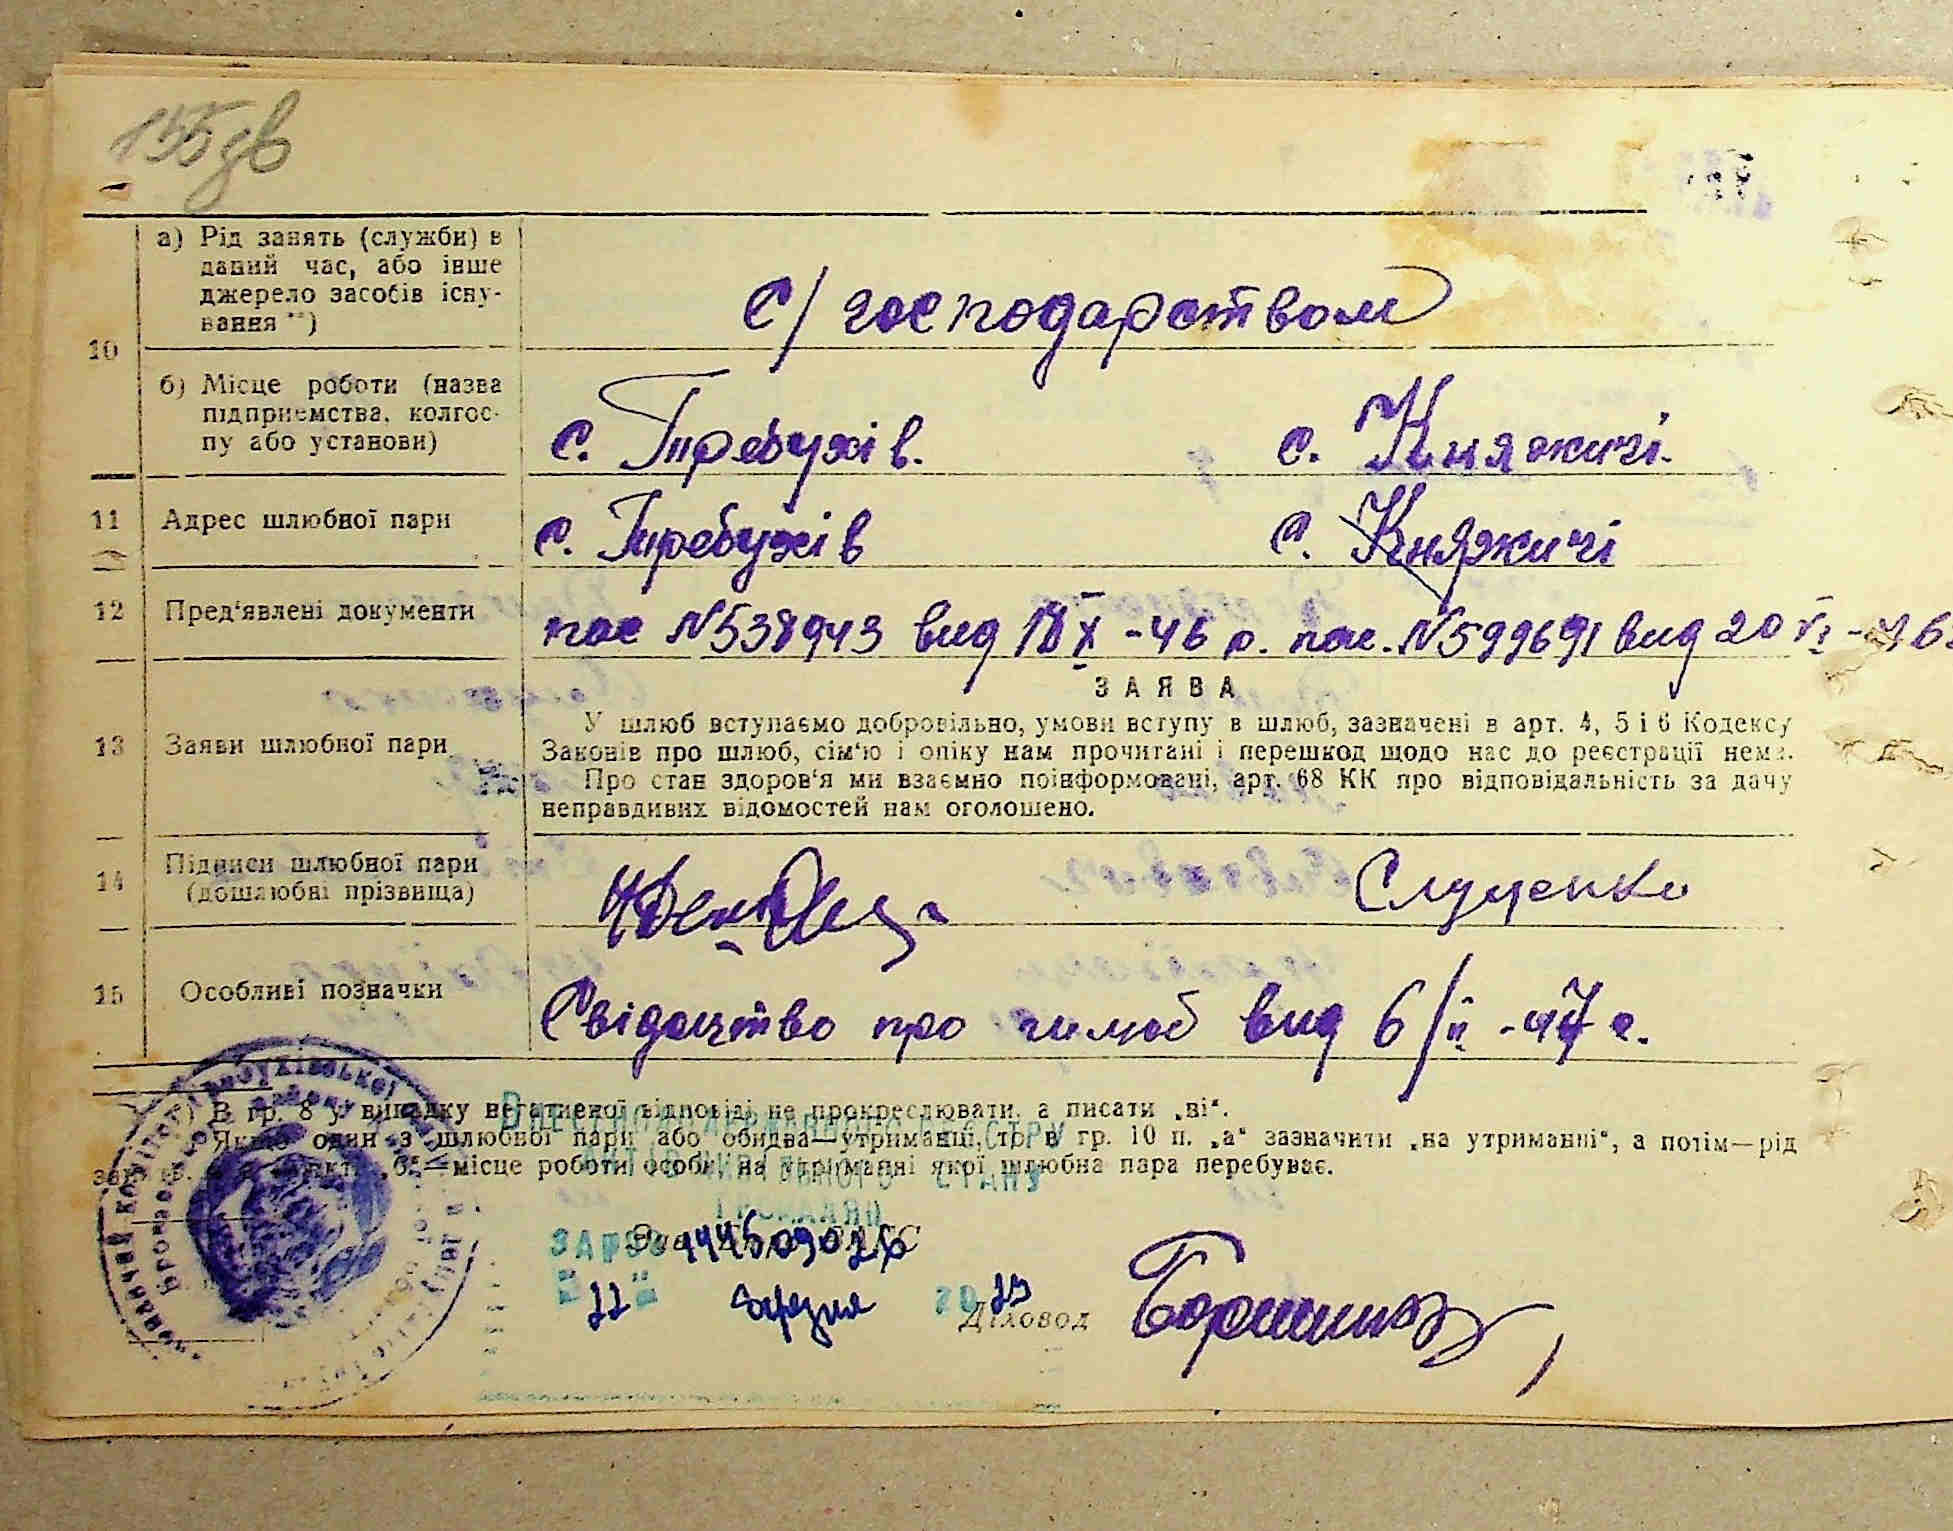 155 зв
а) Рід занять (служби) в
даний час, або інше
джерело засобів існу-
вання **)
с/господарством
10
б) Місце роботи (назва
підприємства, колгос-
пу або установи)
с. Требухів. с. Княжичі.
11 Адрес шлюбної пари с. Требухів с. Княжичі
12 Пред'явлені документи пас №538943 вид X -46 р. пас. №599691 вид 20 VI -46
ЗАЯВА
13 Заяви шлюбної пари
У шлюб вступаємо добровільно, умови вступу в шлюб, зазначені в арт. 4, 5 і 6 Кодексу
Законів про шлюб, сім'ю і опіку нам прочитані і перешкод щодо нас до реєстрації нема.
Про стан здоров'я ми взаємно поінформовані, арт. 68 КК про відповідальність за дачу
неправдивих відомостей нам оголошено.
14 Підписи шлюбної пари
(дошлюбні прізвища)
Слуценко
15 Особливі позначки Свідоцтво про шлюб вид 6/II -47 р.
*) В гр. 8 у випадку негативної відповіді не прокреслювати, а писати „ні“.
Якщо один з шлюбної пари або обидва—утриманці, то в гр. 10 п. „а“ зазначити „на утриманні“, а потім—рід
місце роботи особи, на утриманні якої шлюбна пара перебуває.
Внесено до Державного реєстру
актів цивільного стану
громадян
22 березня 20 23
Діловод